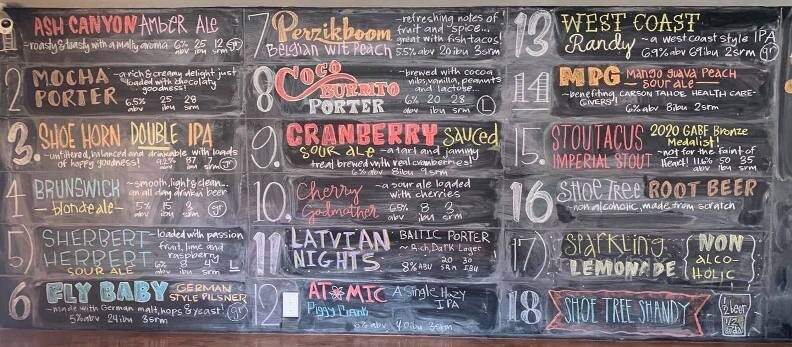 ASH CANYON AMBER ALE
~roasty & toasty with a malty aroma 6% 25 12 gr
abv ibu srm
2 MOCHA PORTER
~a rich & creamy delight just
loaded with chocolaty
goodness!
6.5% 25 28
abv ibu srm
3. SHOE HORN DOUBLE IPA
~unfiltered, balanced and drinkable with loads
of happy goodness! 9.2% 87 7 gr
abv ibu srm
4 BRUNSWICK
~blonde ale~
~smooth, light & clean...
an all day drinkin beer
5% 15 3 gr
abv ibu srm
5) SHERBERT HERBERT
SOUR ALE
~loaded with passion
fruit, lime and
raspberry
6% 8 L
abv ibu srm
6 FLY BABY GERMAN STYLE PILSNER
~made with German malt, hops & yeast! gr
5% abv 24 ibu 3 srm
7 Perzikboom
Belgian wit Peach
~refreshing notes of
fruit and spice...
great with fish tacos!
5.5% abv 20 ibu 3 srm
8 COCO BURRITO PORTER
~brewed with cocoa
nibs, vanilla, peanuts
and lactose...
6% 20 28 L
abv ibu srm
9. CRANBERRY Sauced
SOUR ALE ~a tart and jammy
treat brewed with real cranberries!
6% abv 8 ibu 9 srm
10. Cherry Godmather
~a sour ale loaded
with cherries
6.5% 8
abv ibu srm
11 LATVIAN NIGHTS
BALTIC PORTER
~Rich, Dark Lager
20 30
8% ABV SRM IBU
12 ATOMIC
Piggy Bank
A Single Hazy
IPA
abv 40 ibu 3 srm
13 WEST COAST
Randy ~a west coast style IPA
6.9% abv 69 ibu 2 srm gr
14 MPG Mango Guava Peach
SOUR ALE~
~benefiting CARSON TAHOE HEALTH CARE-
GIVERS!
6% abv 8 ibu 2 srm
15. STOUTACUS
IMPERIAL STOUT
2020 GABF Bronze
Medalist!
~not for the faint of
heart! 11.6% 50 35
abv ibu srm
16 SHOE TREE ROOT BEER
~non alcoholic, made from scratch
17) SPARKLING
LEMONADE
NON
ALCO-
HOLIC
18 SHOE TREE SHANDY
1/2 beer
1/2